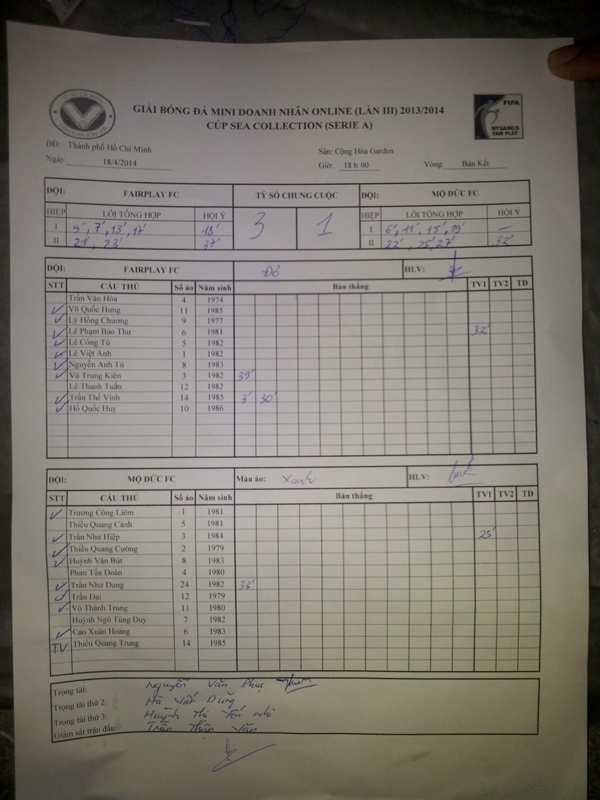 GIẢI BÓNG ĐÁ MINI DOANH NHÂN ONLINE (LẦN III) 2013/2014
CÚP SEA COLLECTION (SERIE A)
FIFA
MY GAME IS FAIR PLAY
ĐĐ: Thành phố Hồ Chí Minh Sân: Cộng Hòa Garden
Ngày 18/4/2014 Giờ: 18 h 00 Vòng: Bán Kết
ĐỘI: FAIRPLAY FC TỶ SỐ CHUNG CUỘC ĐỘI: MỘ ĐỨC FC
HIỆP LỖI TỔNG HỢP HỘI Ý 3 1 HIỆP LỖI TỔNG HỢP HỘI Ý
I 5', 7', 13', 17' 18' I 6', 11', 15', 19' –
II 21', 23' 37' II 22', 25', 27' 32'
ĐỘI: FAIRPLAY FC Đỏ HLV:
STT CẦU THỦ Số áo Năm sinh Bàn thắng TV1 TV2 TĐ
Trần Văn Hòa 4 1974
✓ Võ Quốc Hưng 11 1985
✓ Lý Hồng Chương 9 1977
✓ Lê Phạm Bảo Thu 6 1981 32'
✓ Lê Công Tú 5 1982
✓ Lê Việt Anh 1 1982
✓ Nguyễn Anh Tú 8 1983
✓ Vũ Trung Kiên 3 1982 39'
Lê Thanh Tuấn 12 1982
✓ Trần Thế Vinh 14 1985 3' 30'
✓ Hồ Quốc Huy 10 1986
ĐỘI: MỘ ĐỨC FC Màu áo: Xanh HLV:
STT CẦU THỦ Số áo Năm sinh Bàn thắng TV1 TV2 TĐ
✓ Trương Công Liêm 1 1981
Thiều Quang Cảnh 5 1981
✓ Trần Như Hiệp 3 1984 25'
✓ Thiều Quang Cường 2 1979
✓ Huỳnh Văn Bút 8 1983
Phan Tấn Đoàn 4 1980
✓ Trần Như Dung 24 1982 33'
✓ Trần Đại 12 1979
✓ Võ Thành Trung 11 1980
Huỳnh Ngô Tùng Duy 7 1982
✓ Cao Xuân Hoàng 6 1983
TV Thiều Quang Trung 14 1985
Trọng tài: Nguyễn Văn
Trọng tài thứ 2: Hà Viết Dũng
Trọng tài thứ 3: Huỳnh Thị Yến Nhi
Giám sát trận đấu: Trần Văn